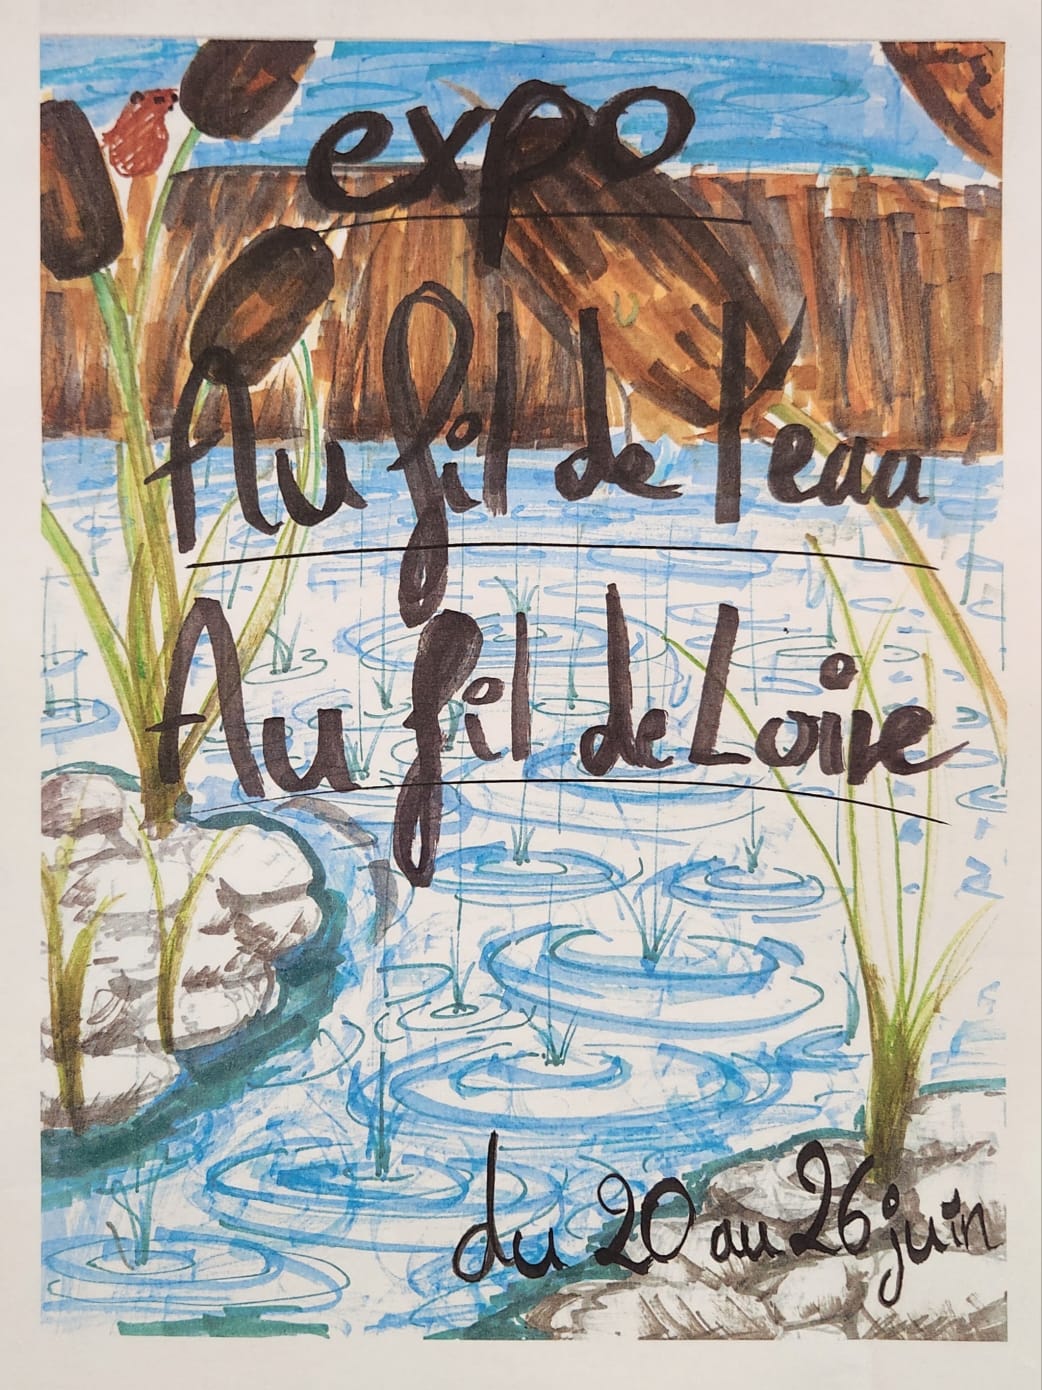 expo
Au fil de l'eau
Au fil de Loire
du 20 au 26 juin